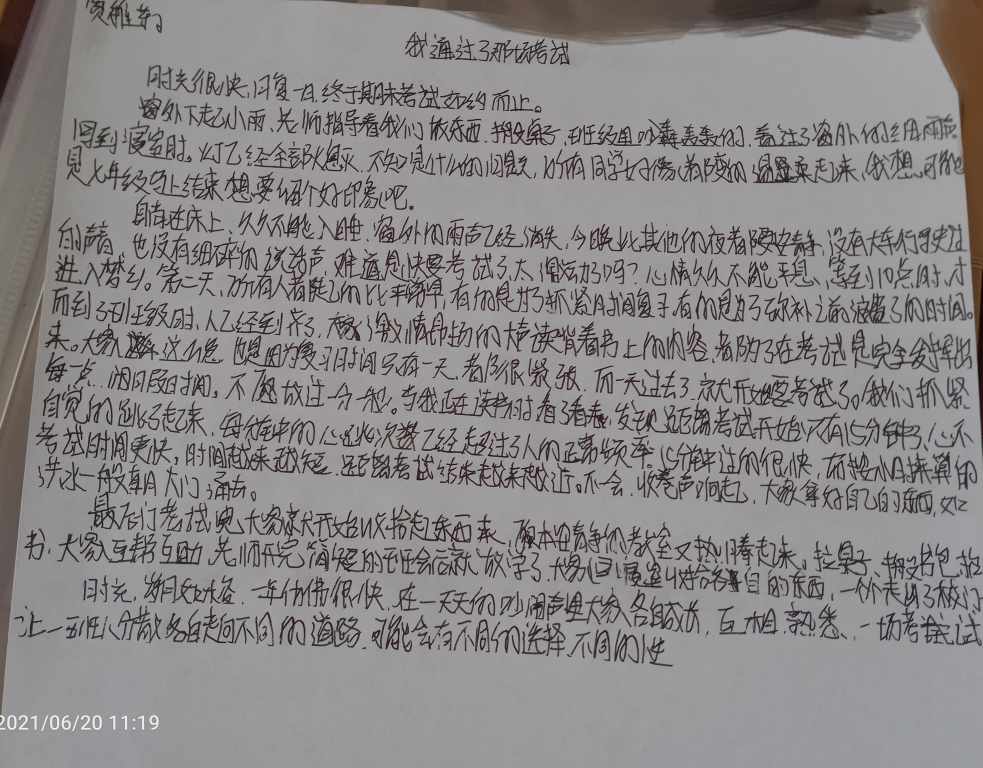 我通过了那场考试
时光很快,日复一日,终于期末考试如约而止。
窗外下起小雨,老师指导着我们放东西,搬桌子,班级里吵轰轰的,看过了窗外的细雨
回到寝室时。灯已经全部熄灭,不知是什么的问题,所有同学好像都变的温柔起来,我想,可能
是七年级马上结束想要留个好印象吧。
自躺在床上,久久不能入睡,窗外的雨声已经消失,今晚比其他的夜都要安静,没有大车行驶过
的声音,也没有细碎的谈话声,难道是快要考试了,太激动了吗?心情久久不能平息,等到10点时,才
进入梦乡。第二天,所有人都起的比平常早,有的是为了抓紧时间复习有的是为了弥补之前浪费了的时间。
而到了班级时,人已经到齐了,大家激情昂扬的大声读背着书上的内容,都为了在考试是完全发挥出
来。大家这么急,也是因为复习时间只有一天,都很紧张,而一天过去了,就开始要考试了。我们抓紧
每一点一滴时间,不愿放过一分一秒。当我正在读书时看了看表,发现距离考试开始只有15分钟了,心不
自觉的跳了起来,每分钟的心跳次数已经超过了人的正常频率,15分钟过的很快,而按小时来算的
考试时间更快,时间越来越短,距离考试结束越来越近。不一会,收卷声响起,大家拿好自己的东西,如
洪水一般朝大门涌去。
最后一门考试完,大家就开始收拾起东西来,原本安静的教室又热闹起来,拉桌子、搬书包、装
书,大家互帮互助,老师开完简短的班会后就放学了,大家回寝室收拾各自的东西,一个个走出了校门
时光,岁月如梭,一年仿佛很快,在一天天的吵闹声里大家各自成长,互相熟悉、一场考试
让一班人分散各自走向不同的道路,可能会有不同的选择,不同的性
2021/06/20 11:19